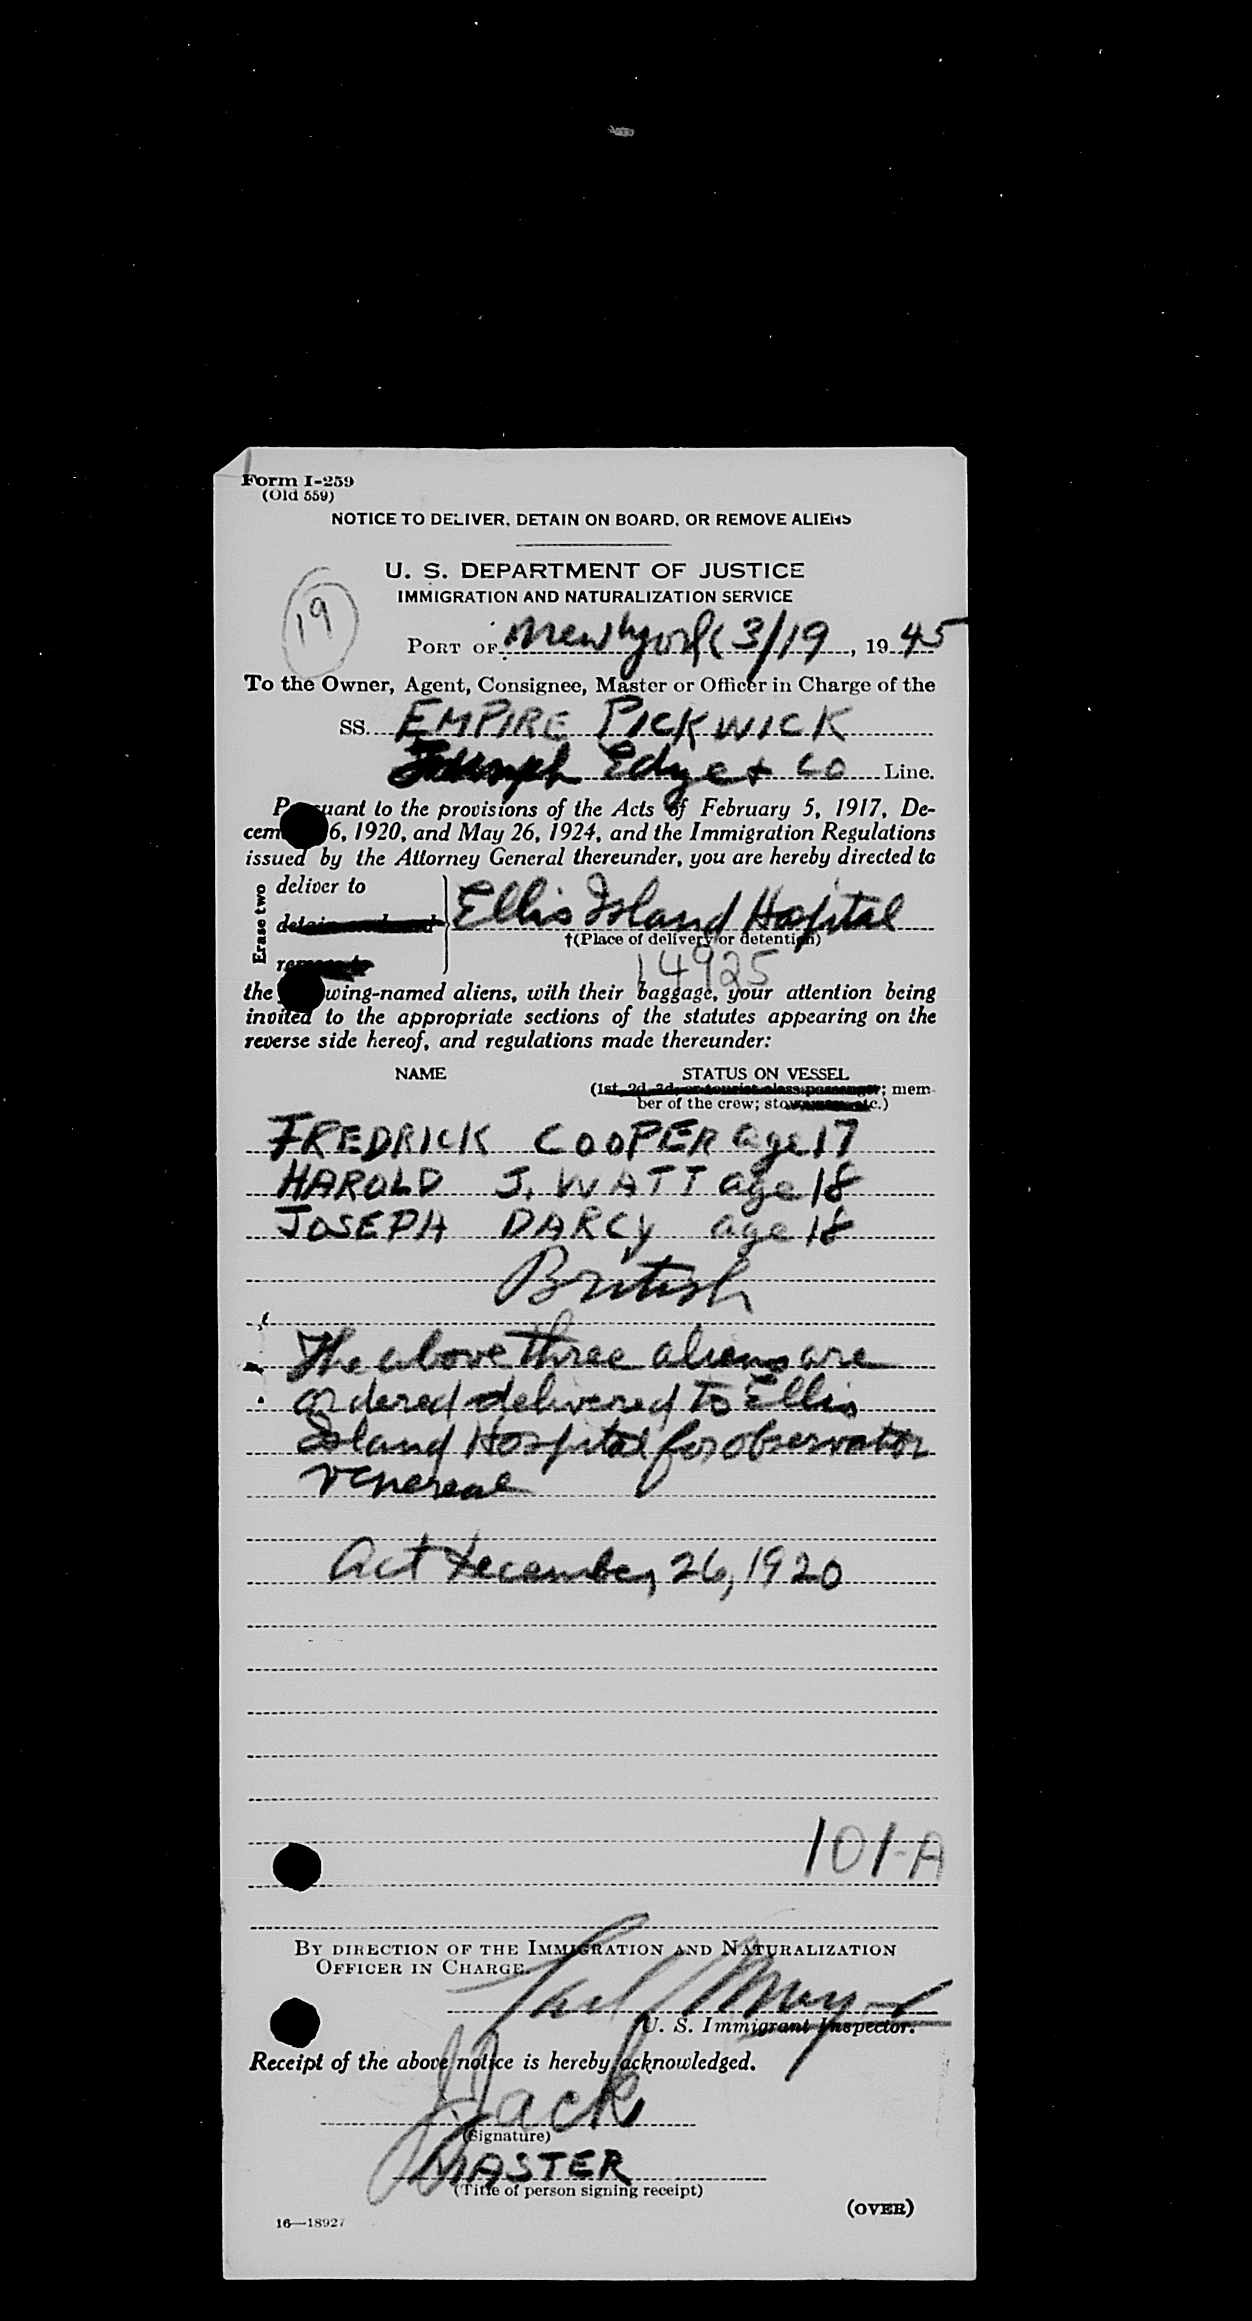 Form I-259
(Old 559)
NOTICE TO DELIVER, DETAIN ON BOARD, OR REMOVE ALIENS
U. S. DEPARTMENT OF JUSTICE
IMMIGRATION AND NATURALIZATION SERVICE
19
PORT OF New York 3/19, 1945
To the Owner, Agent, Consignee, Master or Officer in Charge of the
SS. EMPIRE PICKWICK
Edge + Co Line.
Pursuant to the provisions of the Acts of February 5, 1917, De-
cem 6, 1920, and May 26, 1924, and the Immigration Regulations
issued by the Attorney General thereunder, you are hereby directed to
Erase two
deliver to
Ellis Island Hospital
†(Place of delivery or detention)
14925
the wing-named aliens, with their baggage, your attention being
invited to the appropriate sections of the statutes appearing on the
reverse side hereof, and regulations made thereunder:
NAME STATUS ON VESSEL
(1st, 2d, 3d, or tourist class passenger; mem-
ber of the crew; stowaway, etc.)
FREDRICK COOPER age 17
HAROLD J. WATT age 18
JOSEPH DARCY age 18
British
The above three aliens are
ordered delivered to Ellis
Island Hospital for observation
venereal
Act December 26, 1920
101-A
BY DIRECTION OF THE IMMIGRATION AND NATURALIZATION
OFFICER IN CHARGE.
U. S. Immigrant Inspector.
Receipt of the above notice is hereby acknowledged.
Jack
(Signature)
MASTER
(Title of person signing receipt)
(OVER)
16—18927